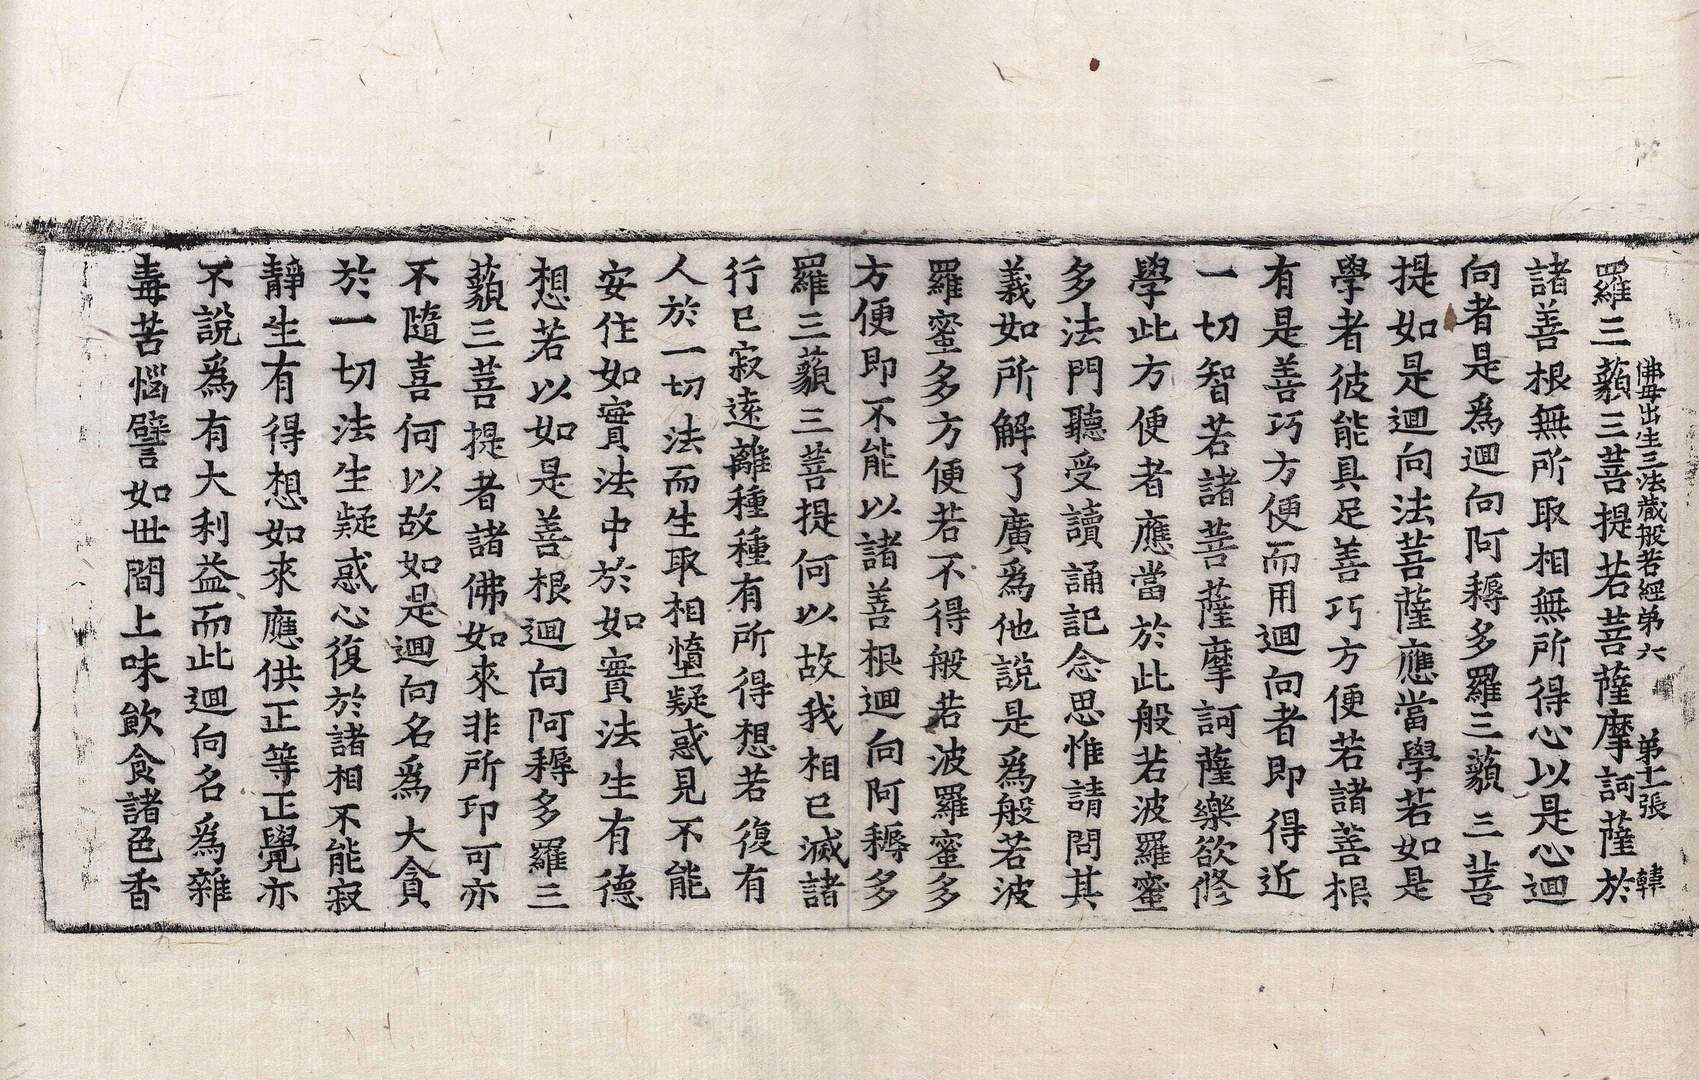 佛母出生三法藏般若經弟六 弟十一張 韓
羅三藐三菩提若菩薩摩訶薩於
諸善根無所取相無所得心以是心迴
向者是爲迴向阿耨多羅三藐三菩
提如是迴向法菩薩應當學若如是
學者彼能具足善巧方便若諸善根
有是善巧方便而用迴向者即得近
一切智若諸菩薩摩訶薩樂欲修
學此方便者應當於此般若波羅蜜
多法門聽受讀誦記念思惟請問其
義如所解了廣爲他說是爲般若波
羅蜜多方便若不得般若波羅蜜多
方便即不能以諸善根迴向阿耨多
羅三藐三菩提何以故我相已滅諸
行已寂遠離種種有所得想若復有
人於一切法而生取相墮疑惑見不能
安住如實法中於如實法生有德
想若以如是善根迴向阿耨多羅三
藐三菩提者諸佛如來非所印可亦
不隨喜何以故如是迴向名爲大貪
於一切法生疑惑心復於諸相不能寂
靜生有得想如來應供正等正覺亦
不說爲有大利益而此迴向名爲雜
毒苦惱譬如世間上味飮食諸色香